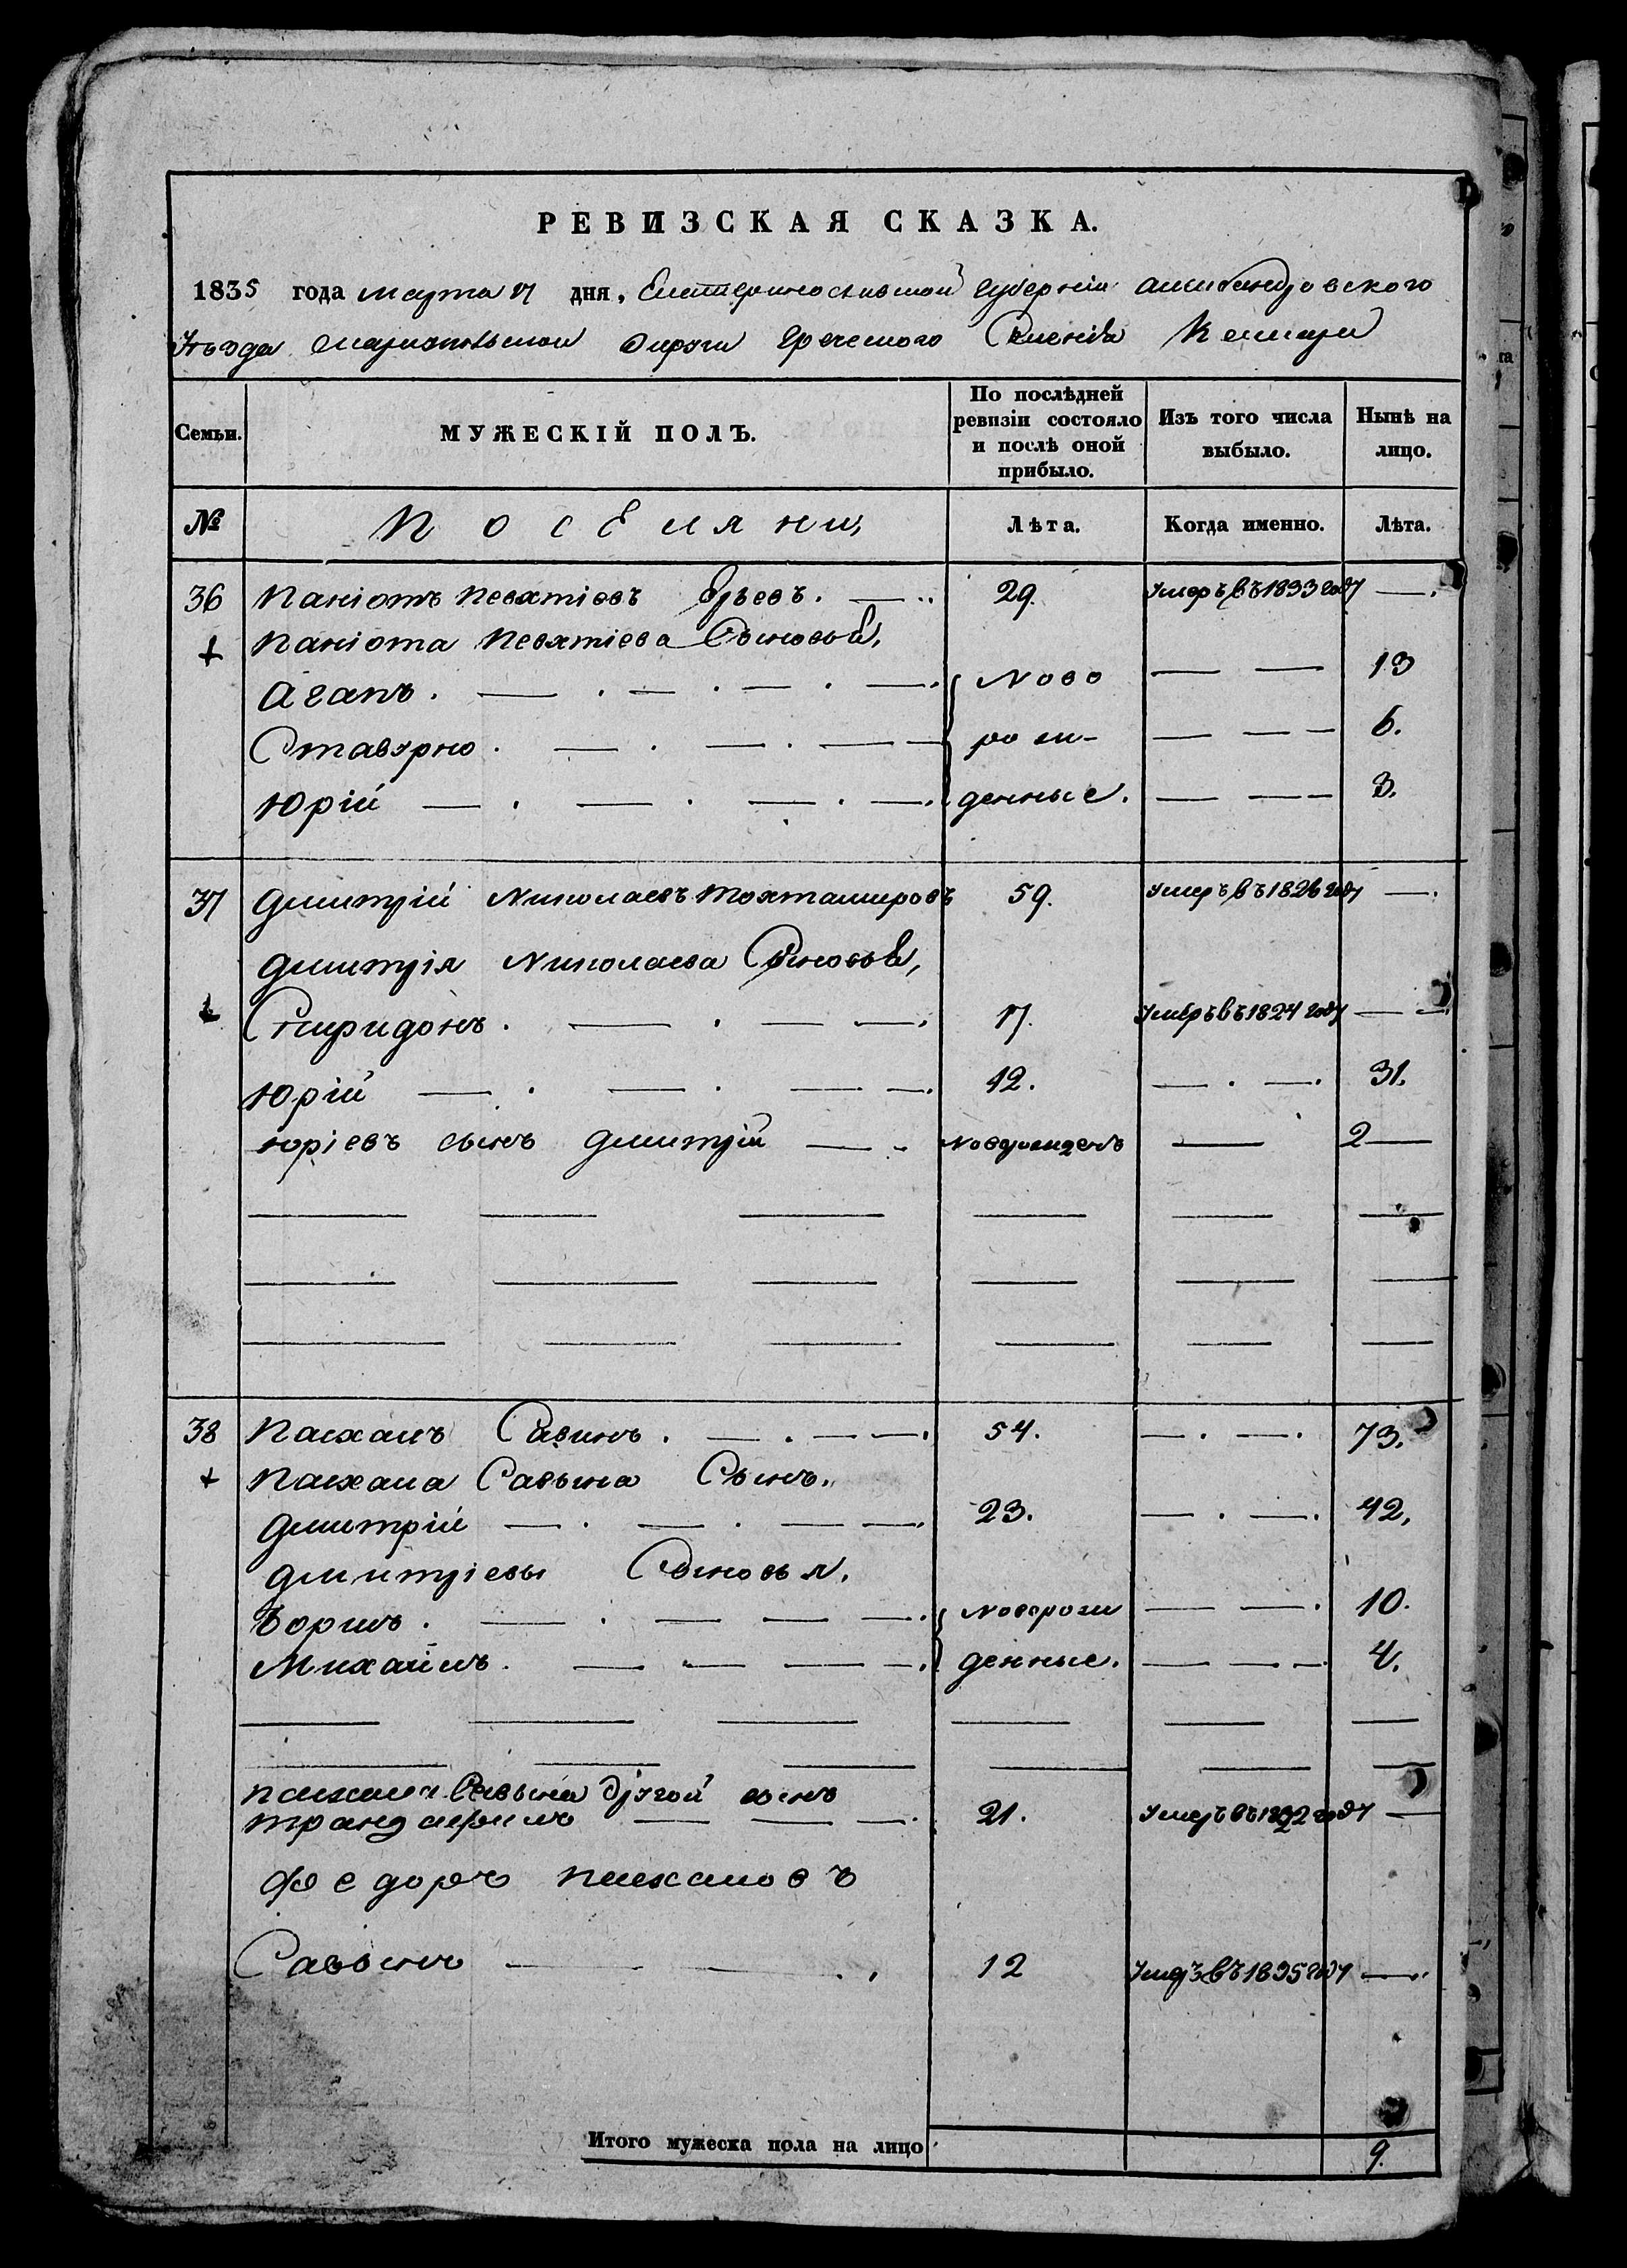 РЕВИЗСКАЯ СКАЗКА.
1835 года марта 17 дня, Екатеринославской Губерніи Александровского
Уѣзда Мариупольской округи Греческого Селенія
Семьи.
МУЖЕСКІЙ ПОЛЪ.
По послѣдней ревизіи состояло и послѣ оной прибыло.
Изъ того числа выбыло.
Нынѣ на лицо.
№
Поселяни,
Лѣта.
Когда именно.
Лѣта.
36 Паніотъ Юрьевъ. 29. Умеръ въ 1833 году —.
+ Паніота Сыновья,
Агапъ. Ново 13
ро ж- 6.
Юрій денные. 3.
37 Дмитрій Николаевъ Тохтамировъ 59. Умеръ въ 1826 году —.
Дмитрія Николаева Сыновья,
Спиридонъ. 17. Умеръ въ 1824 году —
Юрій 12. 31.
Юріевъ сынъ Дмитрій Новорожденъ 2
38 Пасхалъ Савинъ. 54. 73.
+ Пасхала Савьина Сынъ.
Дмитрій 23. 42.
Дмитріевы Сыновья.
Борисъ. Яоворож 10.
Михаилъ. денные. 4.
Пасхала Савьина другой сынъ
Трандафилъ 21. Умеръ въ году —
Федоръ Пасхаловъ
Савьинъ 12 Умеръ въ 1835 году —
Итого мужеска пола на лицо 9.